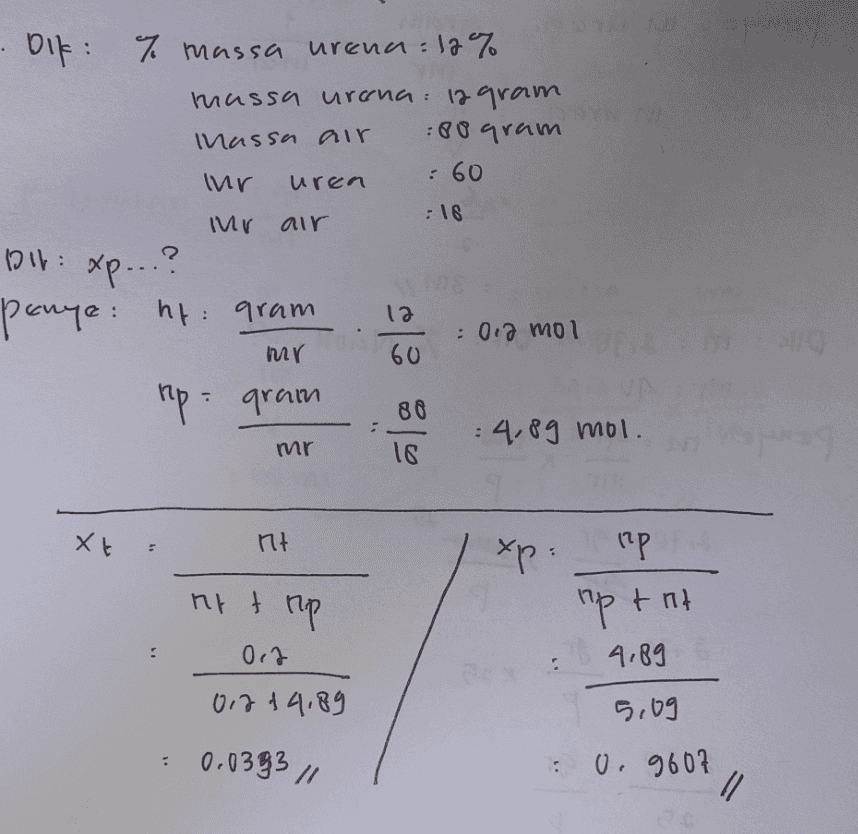 . Dik : % massa urena : 12%
massa urena : 12 gram
massa air : 88 gram
Mr uren : 60
Mr air : 18
Dit : xp...?
penye : nt : gram / mr : 12 / 60 : 0,2 mol
np = gram / mr : 88 / 18 : 4,89 mol.
xt = nt / nt + np
: 0,2 / 0,2 + 4,89
: 0.0393 //
xp : np / np + nt
: 4,89 / 5,09
: 0. 9607 //